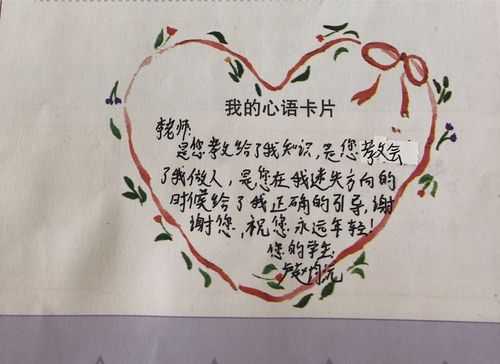 我的心语卡片
李老师
是您教给了我知识,是您教会
了我做人,是您在我迷失方向的
时候给了我正确的引导,谢
谢您,祝您永远年轻!
您的学生
赵均沅